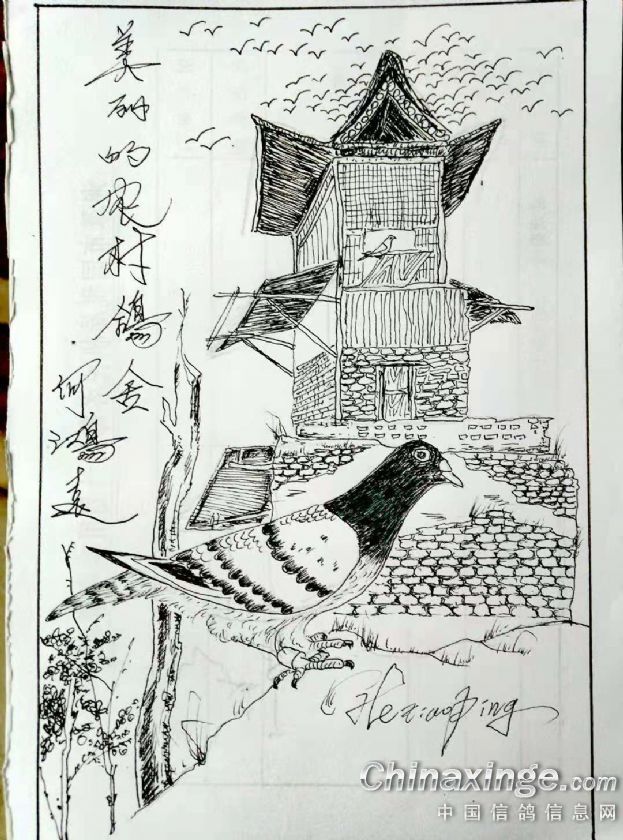 美丽的农村鸽舍
何鸿远
Hexiaoping
Chinaxinge.com
中国信鸽信息网